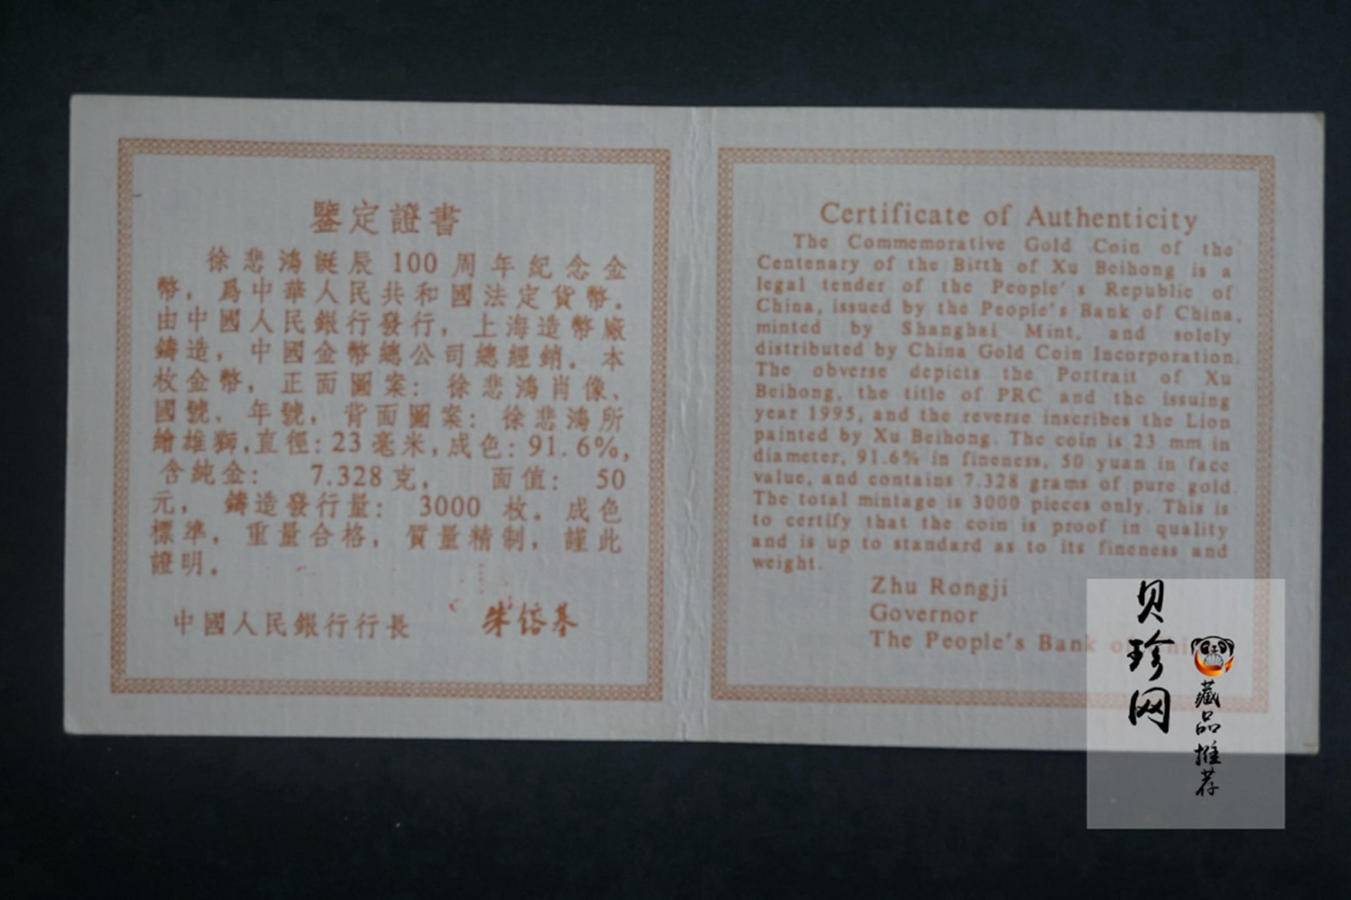 鑒定證書
徐悲鴻誕辰100周年紀念金
幣，爲中華人民共和國法定貨幣。
由中國人民銀行發行，上海造幣廠
鑄造，中國金幣總公司總經銷。本
枚金幣，正面圖案：徐悲鴻肖像、
國號、年號，背面圖案：徐悲鴻所
繪雄獅，直徑：23毫米，成色：91.6%，
含純金： 7.328克， 面值： 50
元， 鑄造發行量： 3000 枚。成色
標準，重量合格，質量精制，謹此
證明。
中國人民銀行行長 朱镕基
Certificate of Authenticity
The Commemorative Gold Coin of the
Centenary of the Birth of Xu Beihong is a
legal tender of the People's Republic of
China, issued by the People's Bank of China,
minted by Shanghai Mint, and solely
distributed by China Gold Coin Incorporation.
The obverse depicts the Portrait of Xu
Beihong, the title of PRC and the issuing
year 1995, and the reverse inscribes the Lion
painted by Xu Beihong. The coin is 23 mm in
diameter, 91.6% in fineness, 50 yuan in face
value, and contains 7.328 grams of pure gold.
The total mintage is 3000 pieces only. This is
to certify that the coin is proof in quality
and is up to standard as to its fineness and
weight.
Zhu Rongji
Governor
The People's Bank of
贝珍网
藏品推荐